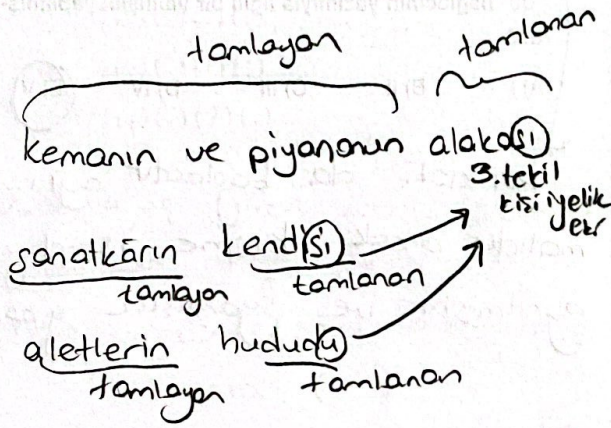 tamlayan tamlanan
kemanın ve piyanonun alakası
3. tekil
kişi iyelik
eki
sanatkârın kendisi
tamlayan tamlanan
aletlerin hududu
tamlayan tamlanan